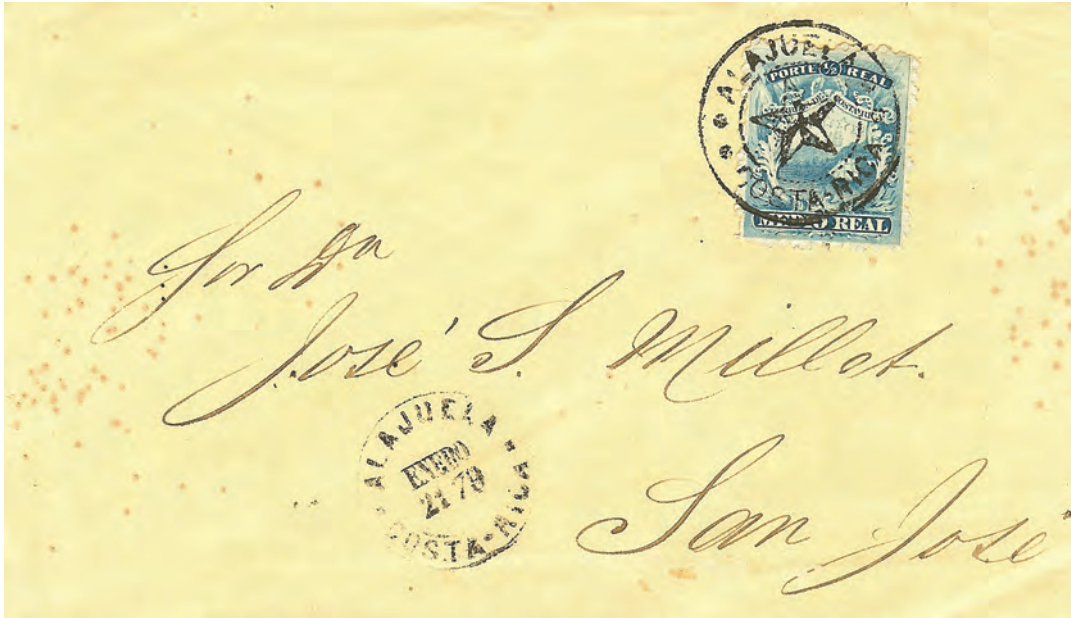 ALAJUELA
COSTA-RICA
PORTE ½ REAL
MEDIO REAL
Sor Dn
José S. Millet.
San José
ALAJUELA
ENERO
21 78
COSTA-RICA